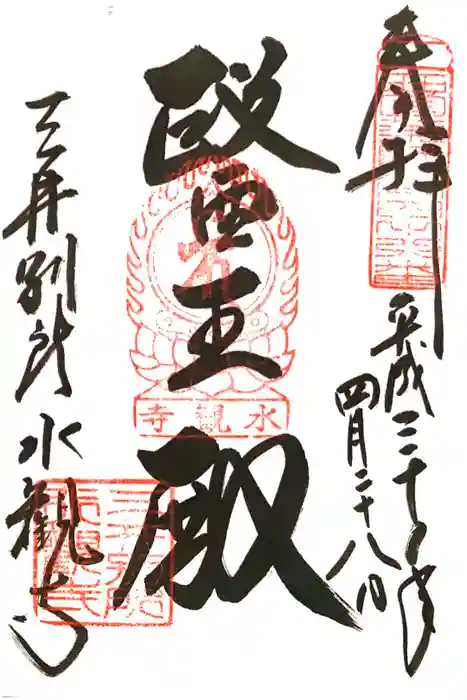 奉拝
平成三十年
四月二十八日
醫王殿
水觀寺
三井別所 水観寺